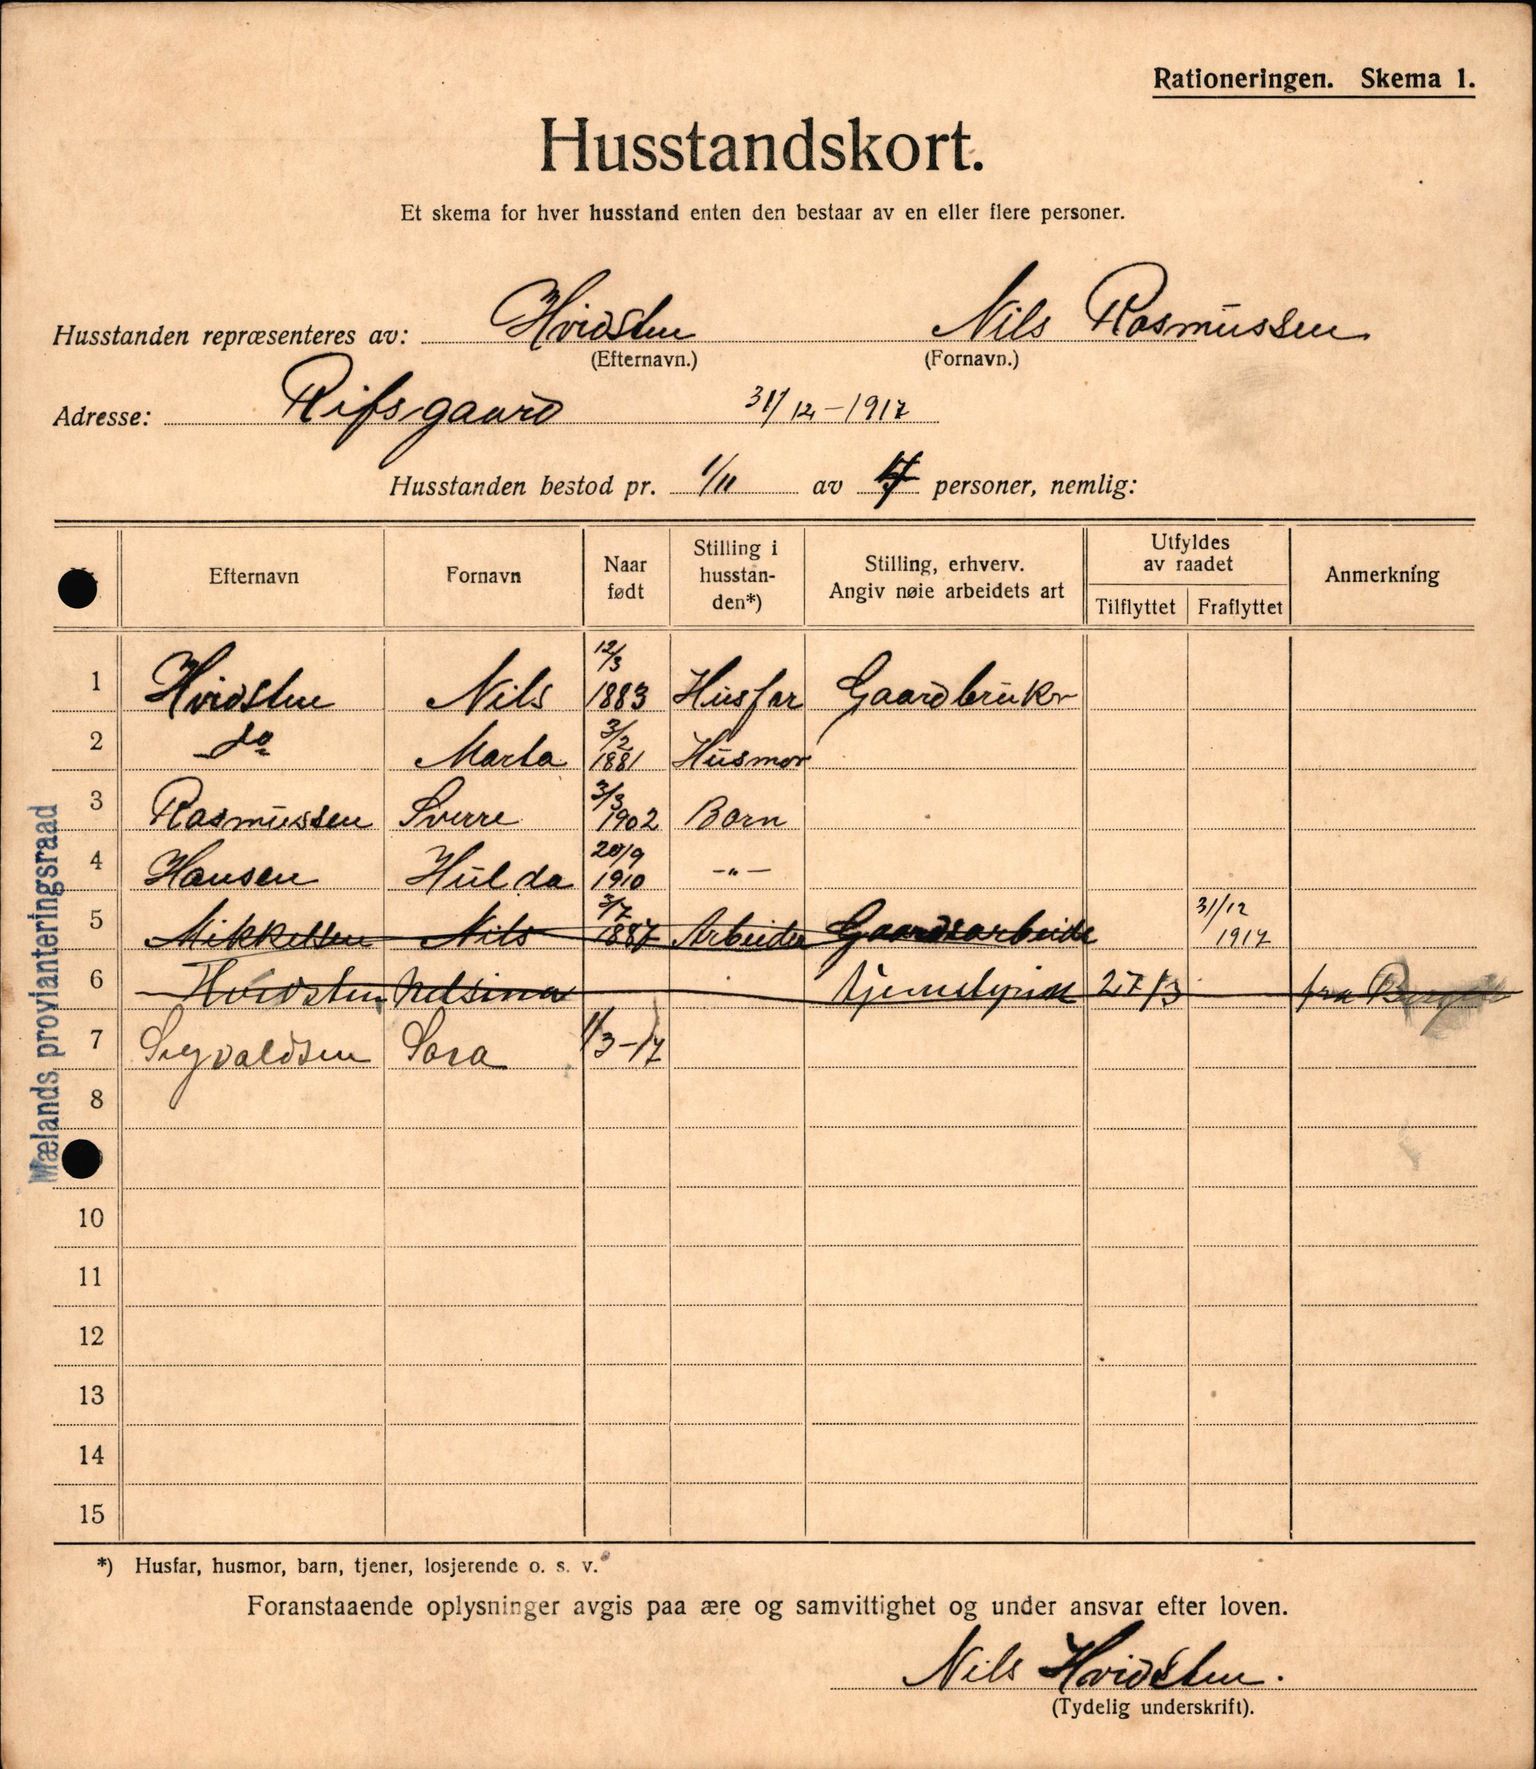 Rationeringen. Skema 1.
Husstandskort.
Et skema for hver husstand enten den bestaar av en eller flere personer.
Husstanden repræsenteres av: Hvidsten Nils Rasmussen
(Efternavn.) (Fornavn.)
Adresse: Rifsgaard 31/12-1917
Husstanden bestod pr. 1/11 av personer, nemlig:
Efternavn Fornavn Naar født Stilling i husstan-den*) Stilling, erhverv. Angiv nøie arbeidets art Utfyldes av raadet Tilflyttet Fraflyttet Anmerkning
1 Hvidsten Nils 12/3 1883 Husfar Gaardbruker
2 do Marta 3/2 1881 Husmor
3 Rasmussen Sverre 3/3 1902 Barn
4 Hansen Hulda 20/9 1910 -"-
5 Mikkelsen Nils 3/7 1887 Arbeider Gaardsarbeide 31/12 1917
6 Hvidsten Nelsina tjenestepige 27/3 fra
7 Sigvaldsen Sara 1/3-17
8
10
11
12
13
14
15
Mælands provianteringsraad
*) Husfar, husmor, barn, tjener, losjerende o. s. v.
Foranstaaende oplysninger avgis paa ære og samvittighet og under ansvar efter loven.
Nils Hvidsten.
(Tydelig underskrift).